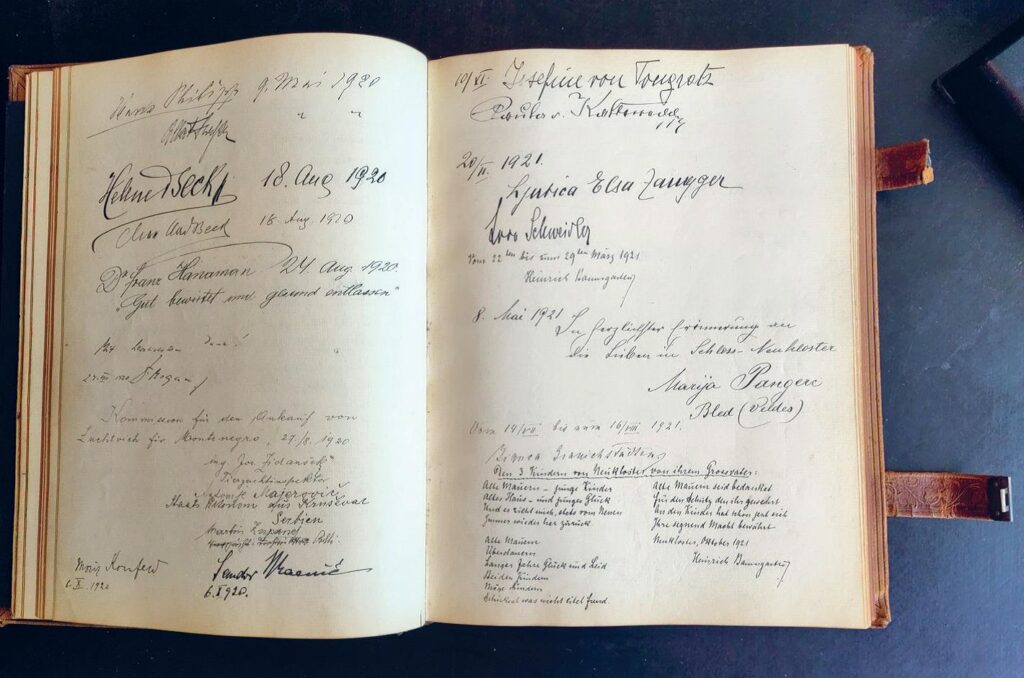 Anna Philipp 9. Mai 1920
" "
Helene Beck 18. Aug 1920
Beck 18. Aug. 1920
Dr Franz Hanaman 24. Aug. 1920.
"Gut bewirtet und gesund entlassen"
Kommission für den Ankauf von
Zuchtvieh für Montenegro, 27/8. 1920
ing. Jos. Zidanšek
Tierzuchtinspektor
Majerović
aus Kruševac
Serbien
Martin Zupanc
Moriz Konfeld
6. X. 1920
Sandor
6. X 920.
10/XI Josefine von
Paula v.
20/II. 1921.
Ljubica Elsa Zangger
Schweidler
Vom 22ten bis zum 29ten März 1921
Heinrich Baumgarten
8. Mai 1921
In herzlichster Erinnerung an
die Lieben in Schloss-Neukloster
Marija Pangerc
Bled (Veldes)
Vom 14/VII bis zum 16/VIII 1921.
Den 3 Kindern von Neukloster von ihrem Grossvater:
Alte Mauern – junge Kinder
Altes Haus – und junges Glück
Und es zieht mich, stets von Neuem
Immer wieder her zurück.
Alte Mauern
Überdauern
Langer Jahre Glück und Leid
Beiden Kindern
Möge lindern
Schicksal was nicht eitel Freud.
Alte Mauern seid bedanket
Für den Schutz den ihr gewährt
An den Kindern hat schon jetzt sich
Ihre segnend Macht bewährt
Neukloster, Oktober 1921
Heinrich Baumgarten